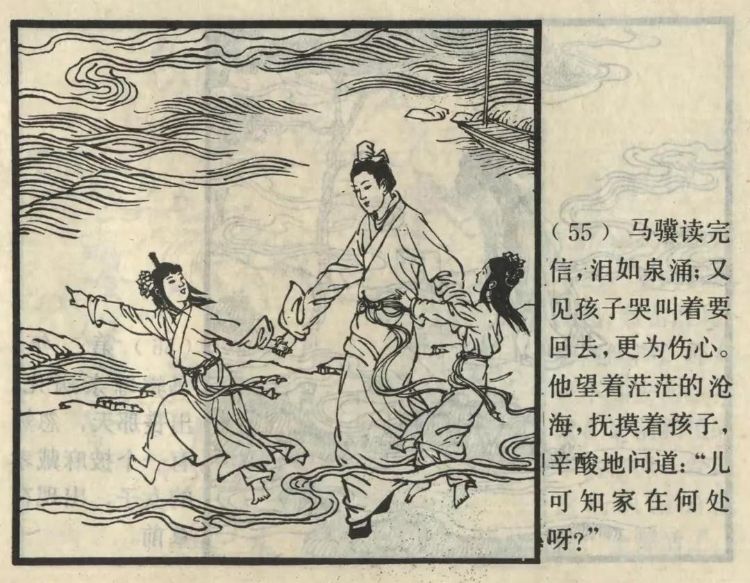 （55） 马骥读完
信，泪如泉涌；又
见孩子哭叫着要
回去，更为伤心。
他望着茫茫的沧
海，抚摸着孩子，
辛酸地问道：“儿
可知家在何处
呀？”